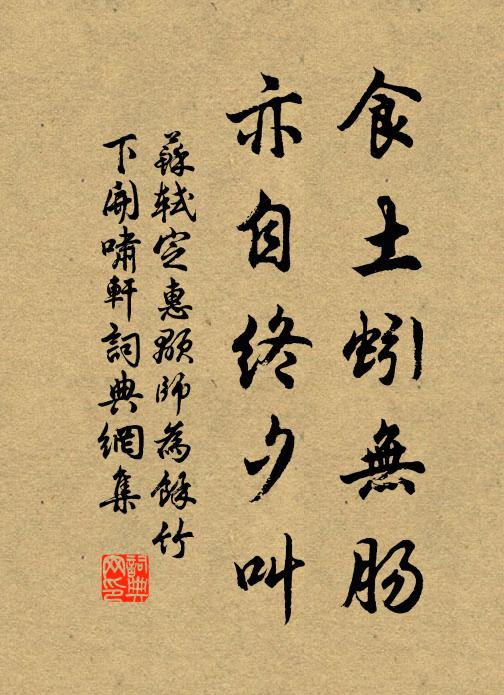 食土蚓無腸
亦自終夕叫
蘇軾定惠顒師為餘竹
下開嘯軒詞典網集
詞典
网印